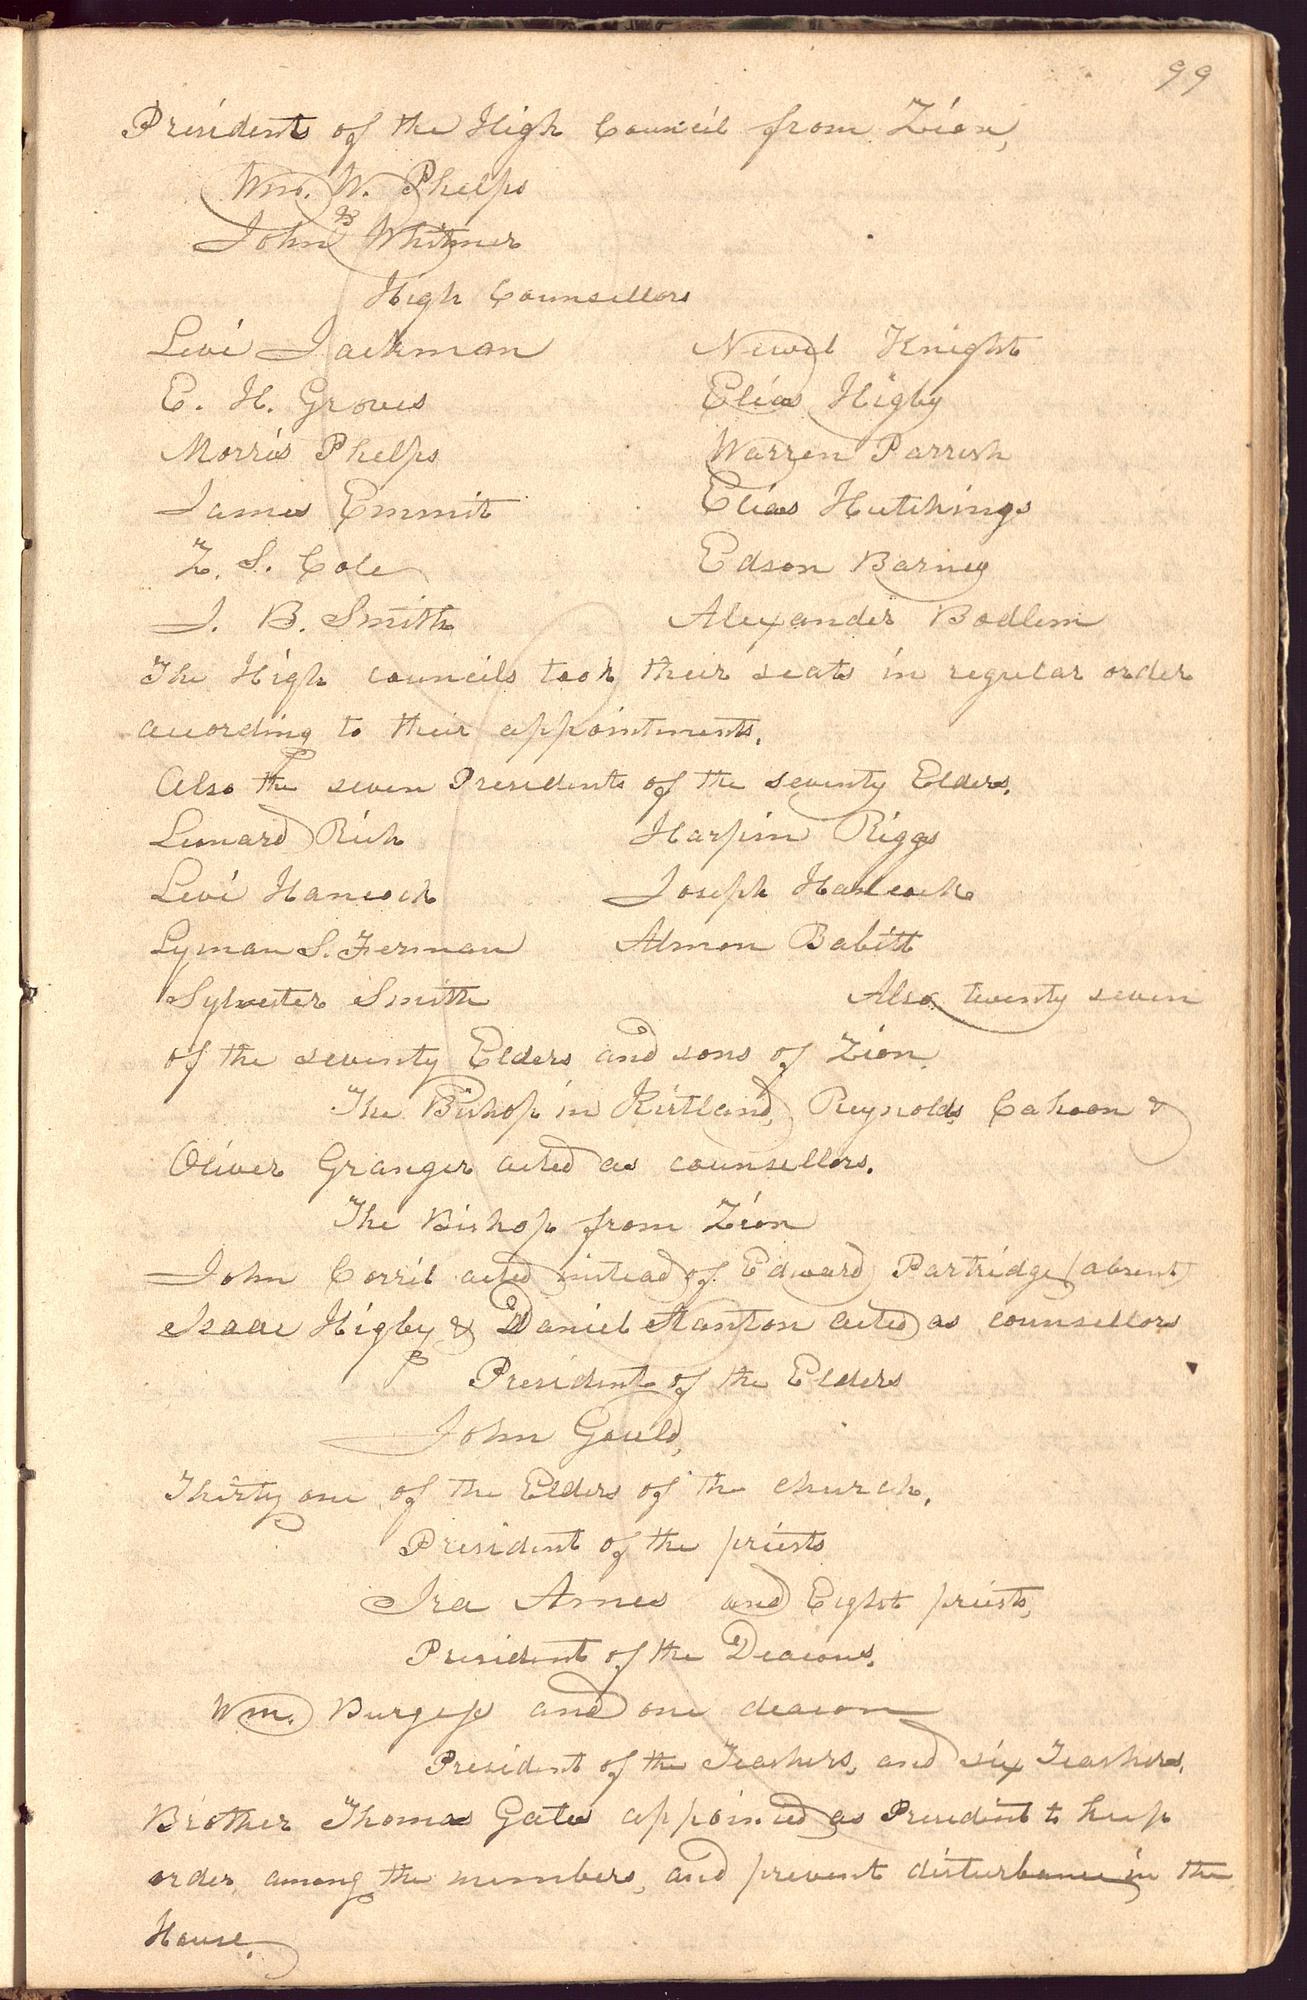 99
Presidents of the High Council from Zion,
Wm. W. Phelps
&
John Whitmer
High Counsellors
Levi Jackman Newel Knight
E. H. Groves Elias Higby
Morris Phelps Warren Parrish
James Emmit Elias Hutchings
Z. S. Cole Edson Barney
J. B. Smith Alexander Badlem
The High councils took their seats in regular order
according to their appointments.
Also the seven Presidents of the seventy Elders.
Leonard Rich Harpin Riggs
Levi Hancock Joseph Hancock
Lyman S. Herman Almon Babitt
Sylvester Smith Also twenty seven
of the seventy Elders and sons of Zion.
The Bishop in Kirtland, Reynolds Cahoon &
Oliver Granger acted as counsellors.
The Bishop from Zion
John Corril acted instead of Edward Partridge (absent)
Isaac Higby & Daniel Stanton acted as counsellors
President of the Elders
John Gould,
Thirty one of the Elders of the church.
President of the priests
Ira Ames and Eight priests,
President of the Deacons.
Wm. Burgess and one deacon
President of the Teachers, and six Teachers.
Brother Thomas Gates appointed as President to keep
order among the members, and prevent disturbance in the
House.